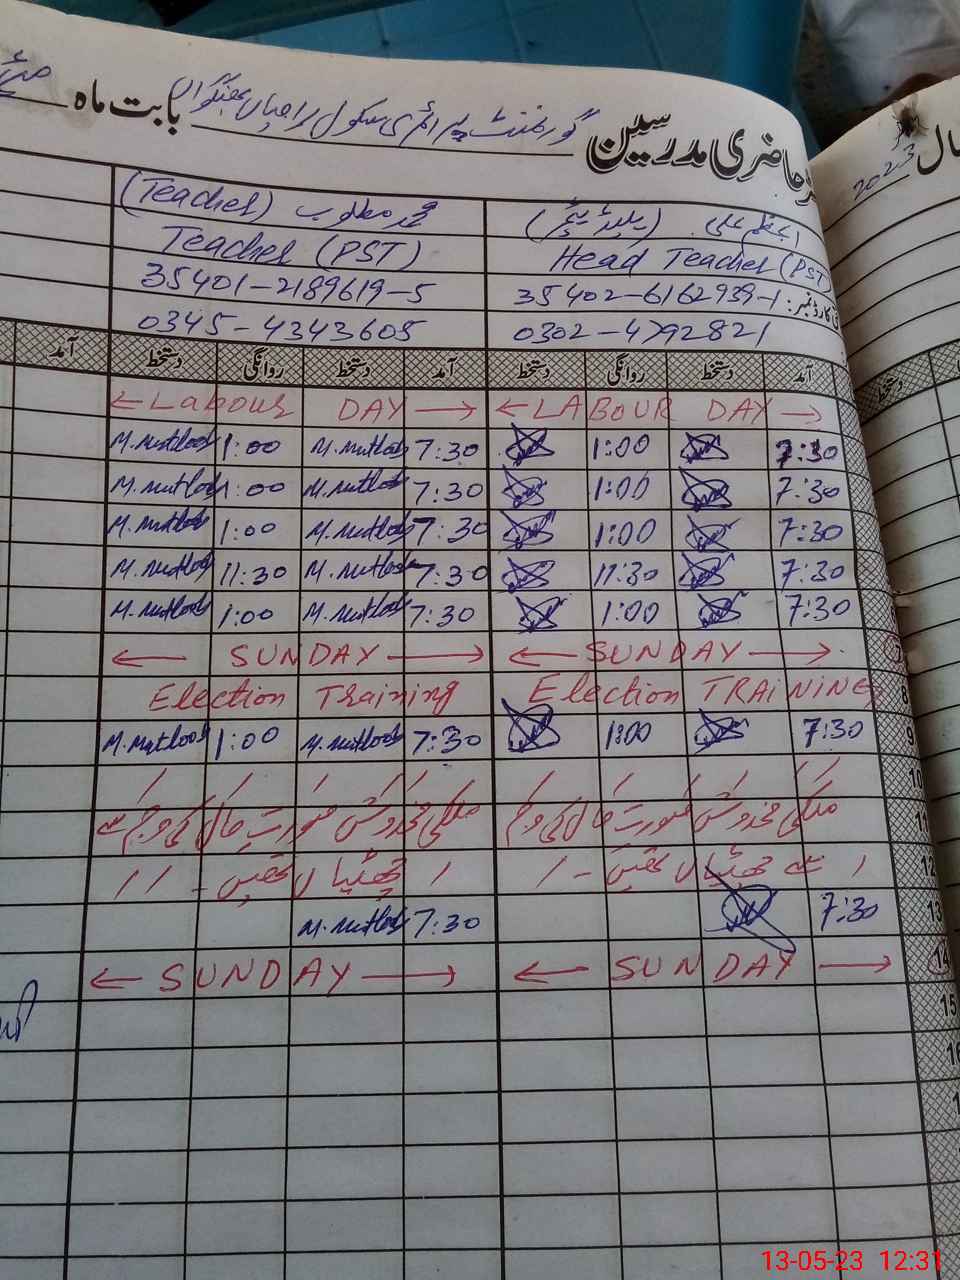 حاضری مدرسین گورنمنٹ پرائمری سکول بابت ماہ مئی
سال 2023
(ہیڈ ٹیچر) محمد مطلوب (Teacher)
Head Teacher (PST Teacher (PST)
کارڈ نمبر: 35402-6162939-1 35401-2189619-5
0302-4792821 0345-4343605
آمد دستخط روانگی دستخط آمد دستخط روانگی دستخط آمد
← LABOUR DAY → ← Labour DAY →
7:30 1:00 7:30 M.Mutloob 1:00 M.Mutloob
7:30 1:00 7:30 M.Mutloob 1:00 M.Mutloob
7:30 1:00 7:30 M.Mutloob 1:00 M.Mutloob
7:30 11:30 7:30 M.Mutloob 11:30 M.Mutloob
7:30 1:00 7:30 M.Mutloob 1:00 M.Mutloob
← SUNDAY → ← SUNDAY →
8 Election TRAINING Election Training
9 7:30 1:00 7:30 M.Mutloob 1:00 M.Mutloob
10
11 ملکی مخدوش صورت حال کی وجہ ملکی مخدوش صورت حال کی وجہ سے
12 سے چھٹیاں تھیں - چھٹیاں تھیں -
13 7:30 7:30 M.Mutloob
14 ← SUNDAY → ← SUNDAY →
15
13-05-23 12:31